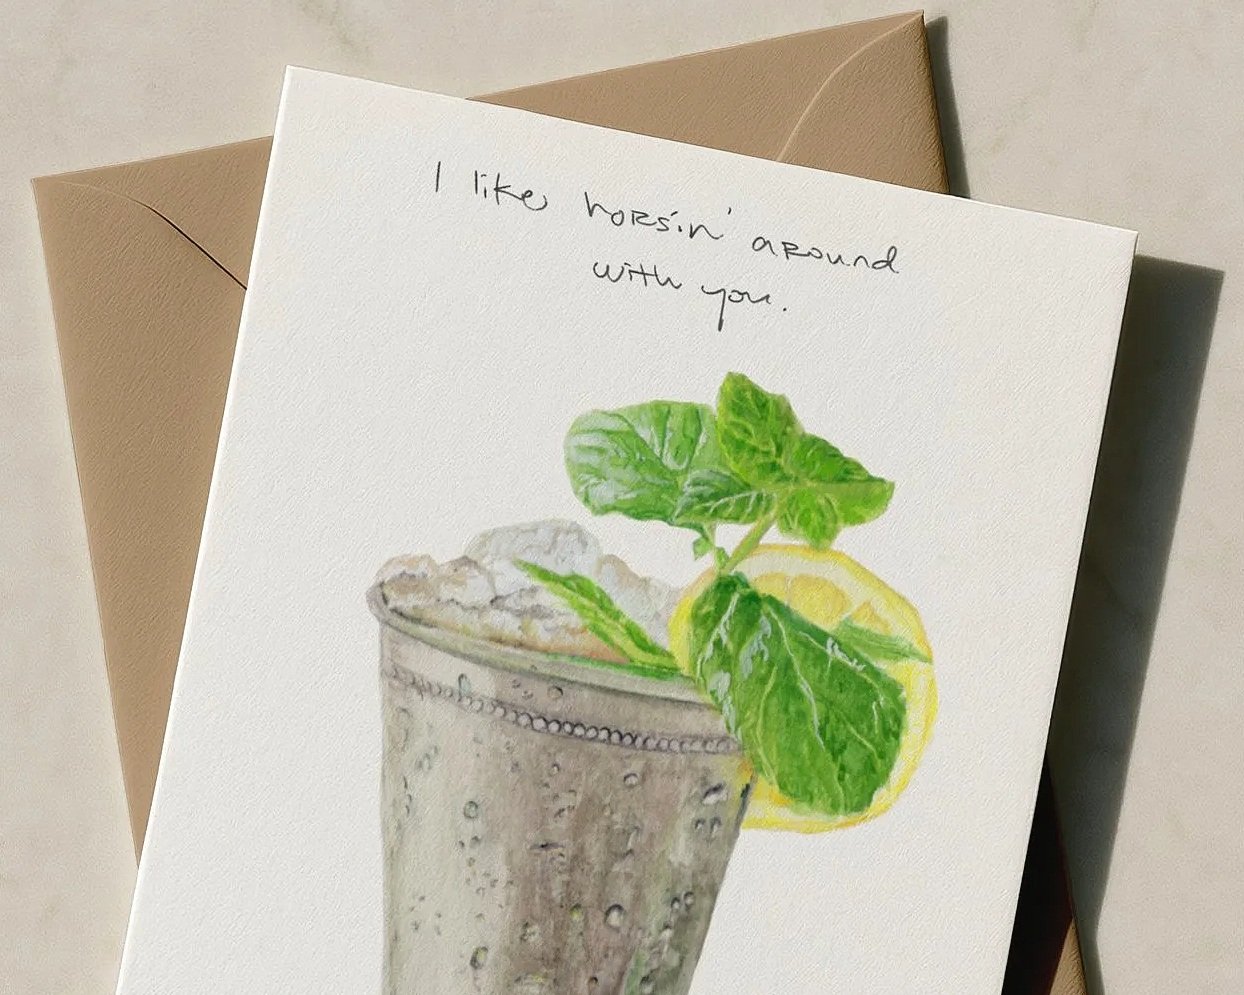 I like horsin' around
with you.